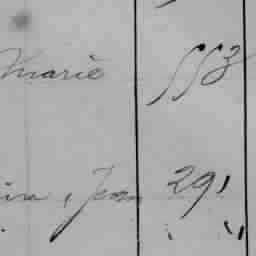 Marie 553
Jean 291